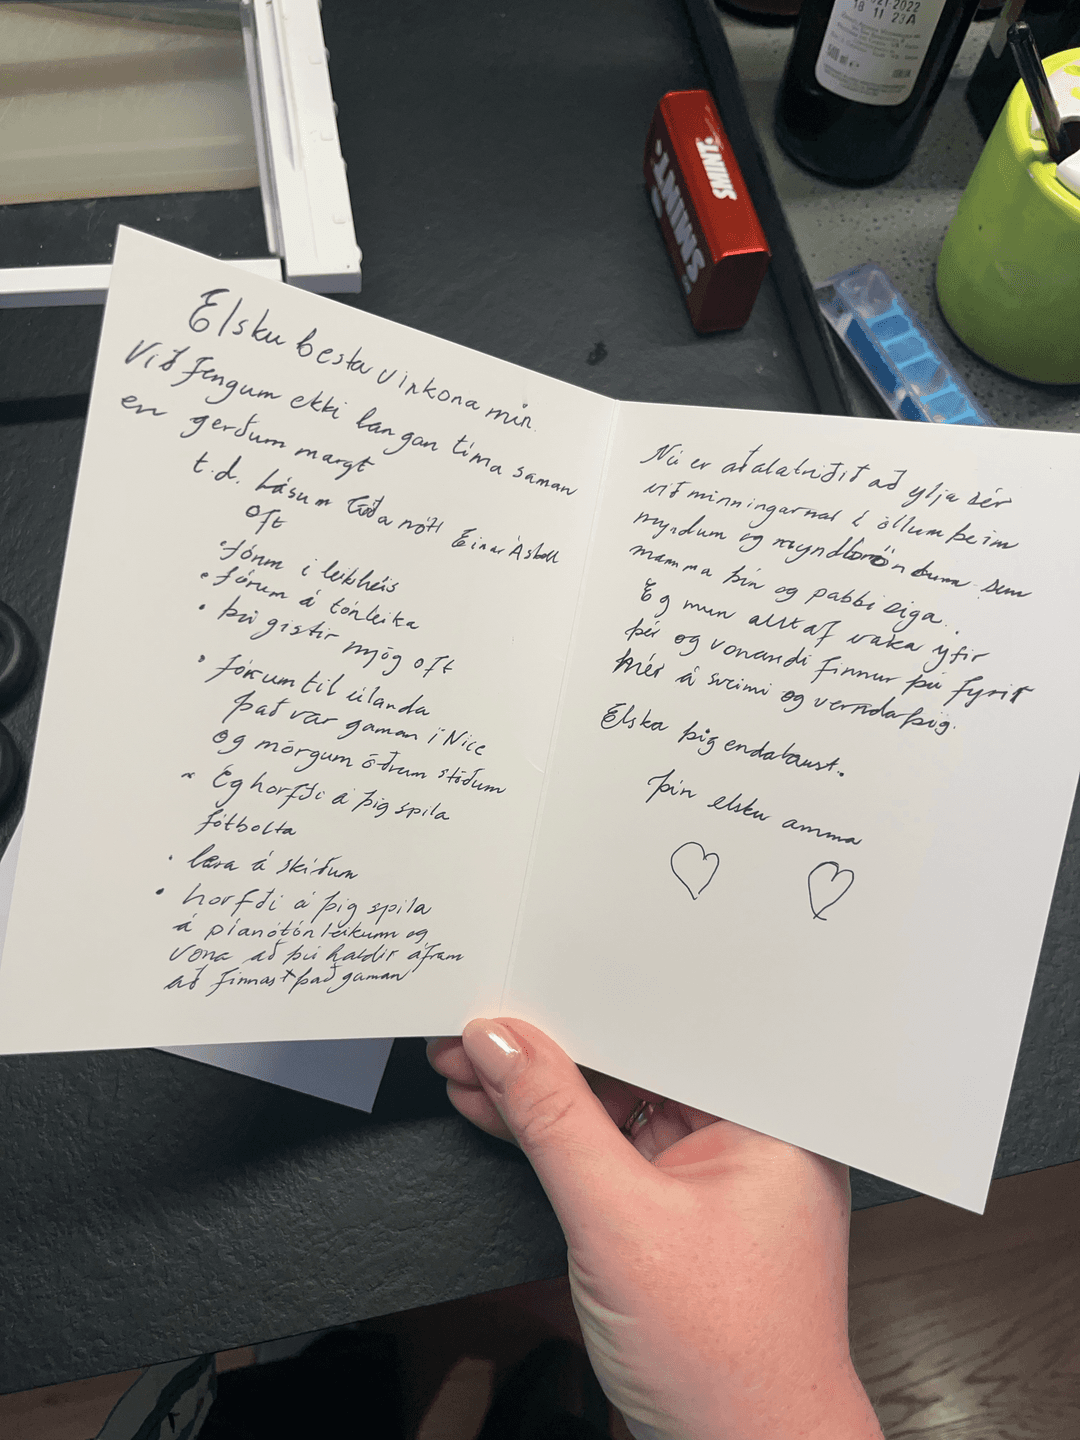 Elsku besta vinkona mín.
Við fengum ekki langan tíma saman
en gerðum margt
t.d. Lásum Góða nótt Einar Áskell
oft
• fórum í leikhús
• fórum á tónleika
• þú gistir mjög oft
• fórum til útlanda
það var gaman í Nice
og mörgum öðrum stöðum
~ Ég horfði á þig spila
fótbolta
• læra á skíðum
• horfði á þig spila
á píanótónleikum og
vona að þú haldir áfram
að finnast það gaman
Nú er aðalatriðið að ylja sér
við minningarnar í öllum þeim
myndum og myndböndum sem
mamma þín og pabbi eiga.
Ég mun alltaf vaka yfir
þér og vonandi finnur þú fyrir
mér á sveimi og vernda þig.
Elska þig endalaust.
Þín elsku amma
SMINT.
SMINT.
2022
18 11 23A